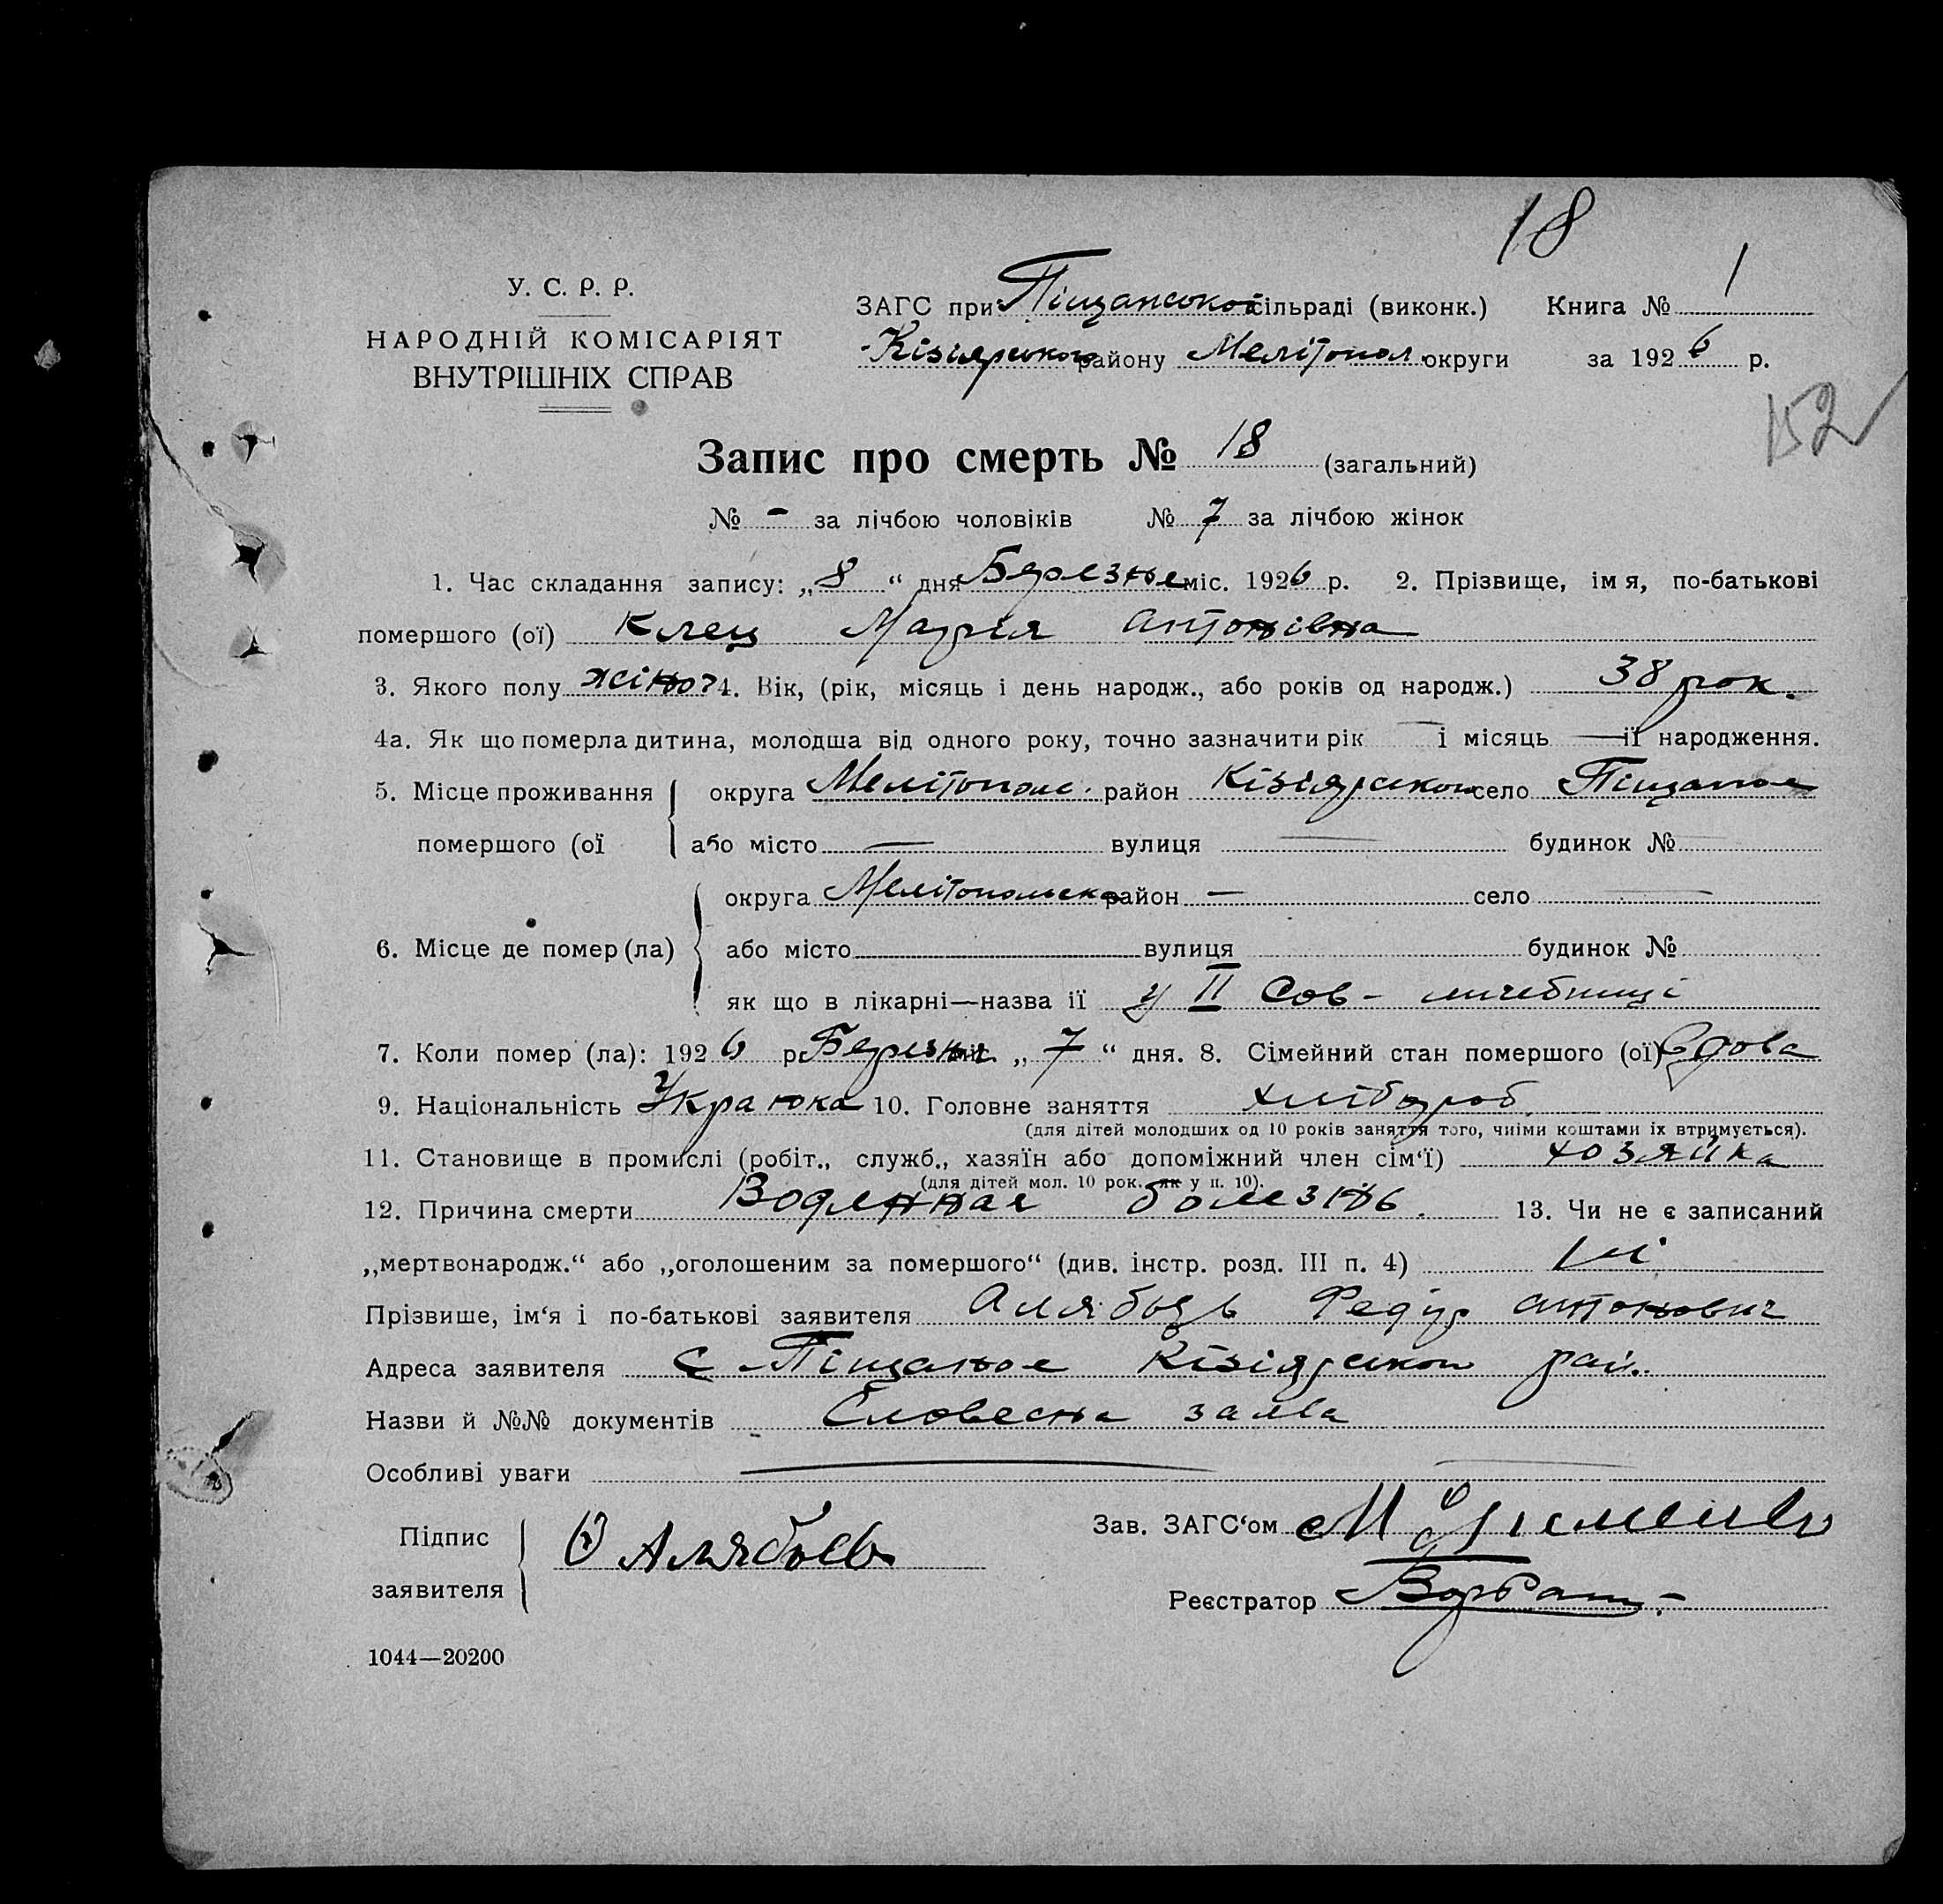 18
У. С. Р. Р.
НАРОДНІЙ КОМІСАРІЯТ
ВНУТРІШНІХ СПРАВ
ЗАГС при Піщанської сільраді (виконк.) Книга № 1
Кізіярського району Мелітопол. округи за 1926 р.
152
Запис про смерть № 18 (загальний)
№ - за лічбою чоловіків № 7 за лічбою жінок
1. Час складання запису: „8“ дня Березня міс. 1926 р. 2. Прізвище, ім я, по-батькові
помершого (ої) Клец Марія Антонівна
3. Якого полу жіноч 4. Вік, (рік, місяць і день народж., або років од народж.) 38 рок.
4а. Як що померла дитина, молодша від одного року, точно зазначити рік — і місяць — її народження.
5. Місце проживання округа Мелітополс. район Кізіярсько село Піщаное
помершого (ої або місто — вулиця — будинок №
округа Мелітопольска район — село —
6. Місце де помер (ла) або місто вулиця будинок №
як що в лікарні—назва ії у II Сов- личебниці
7. Коли помер (ла): 1926 р. Березня міс. „7“ дня. 8. Сімейний стан помершого (ої) Вдова
9. Національність Украінка 10. Головне заняття хлібороб.
(для дітей молодших од 10 років заняття того, чиїми коштами іх втримується).
11. Становище в промислі (робіт., служб., хазяїн або допоміжний член сім‘ї) хозяйка
(для дітей мол. 10 рок. як у п. 10).
12. Причина смерти Водянная болезнь. 13. Чи не є записаний
„мертвонародж.“ або „оголошеним за помершого“ (див. інстр. розд. III п. 4) Ні
Прізвише, ім‘я і по-батькові заявителя Алябьев Федір Антонович
Адреса заявителя с Піщаное Кізіярсько рай.
Назви й №№ документів Словесна заява
Особливі уваги —
Підпис
заявителя Ѳ Алябьев
Зав. ЗАГС‘ом
Реєстратор
1044—20200